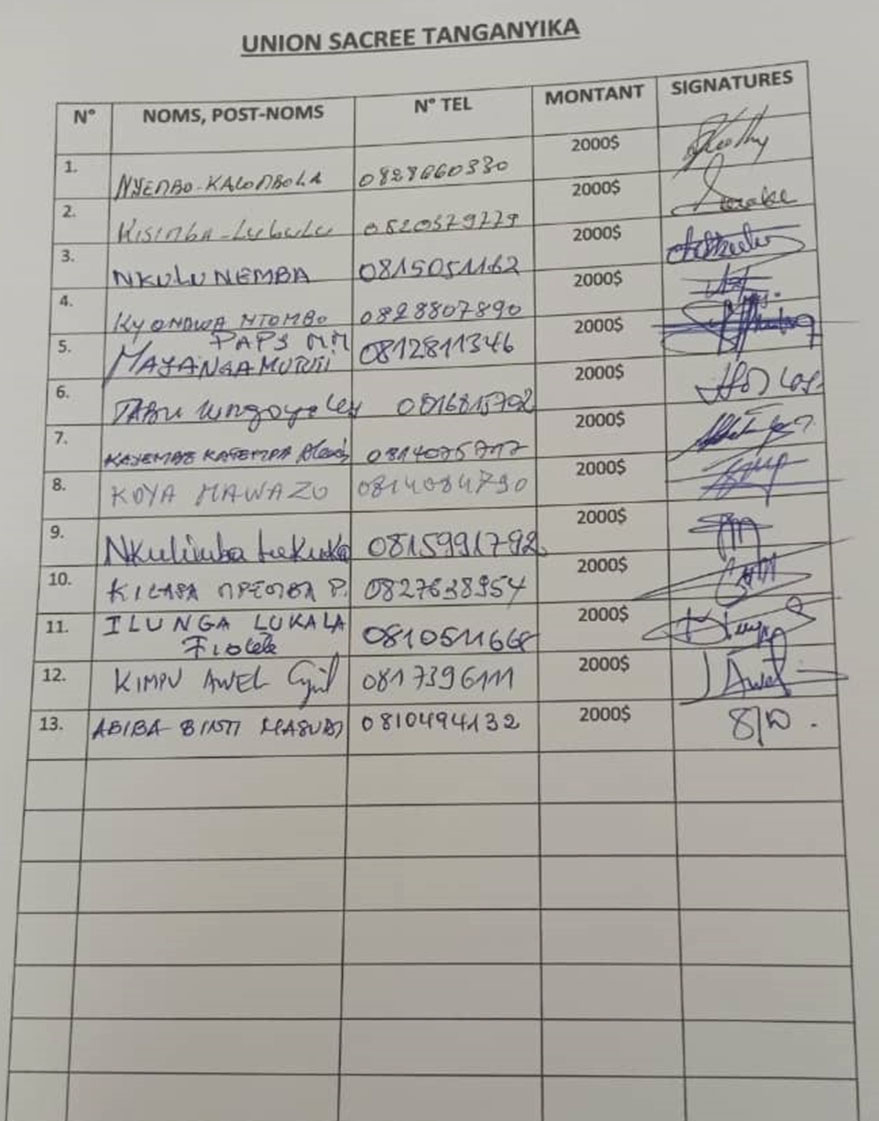 UNION SACREE TANGANYIKA
N° NOMS, POST-NOMS N° TEL MONTANT SIGNATURES
1. NYEMBO-KALOMBOLA 0828660330 2000$
2. KISIMBA-Lubulu 0820579779 2000$
3. NKULU NEMBA 0815051162 2000$
4. KYONDWA NTOMBO 0828807890 2000$
PAPY
5. MAYANGA 0812811346 2000$
6. TABU 0816815702 2000$
7. KAYEMBE KATEMPA Alexis 2000$
8. KOYA MAWAZO 0814084790 2000$
9. Nkulimba 0815991792 2000$
10. KILABA P. 0827638954 2000$
11. ILUNGA LUKALA 0810511668 2000$
12. KIMPU AWEL 0817396111 2000$ Awel
13. ABIBA BINTI MASUDI 0810494132 2000$